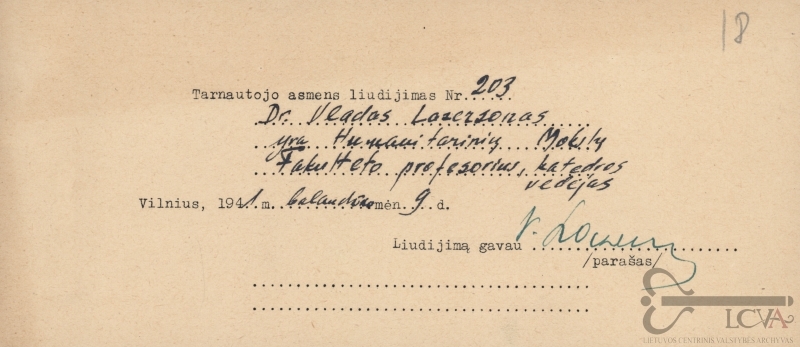 18
Tarnautojo asmens liudijimas Nr. 203
Dr. Vladas Lazersonas
yra Humanitarinių Mokslų
Fakulteto profesorius, katedros
vedėjas
Vilnius, 1941 m. balandžio mėn. 9 d.
Liudijimą gavau V. Lazerson
/parašas/
LCVA
LIETUVOS CENTRINIS VALSTYBĖS ARCHYVAS